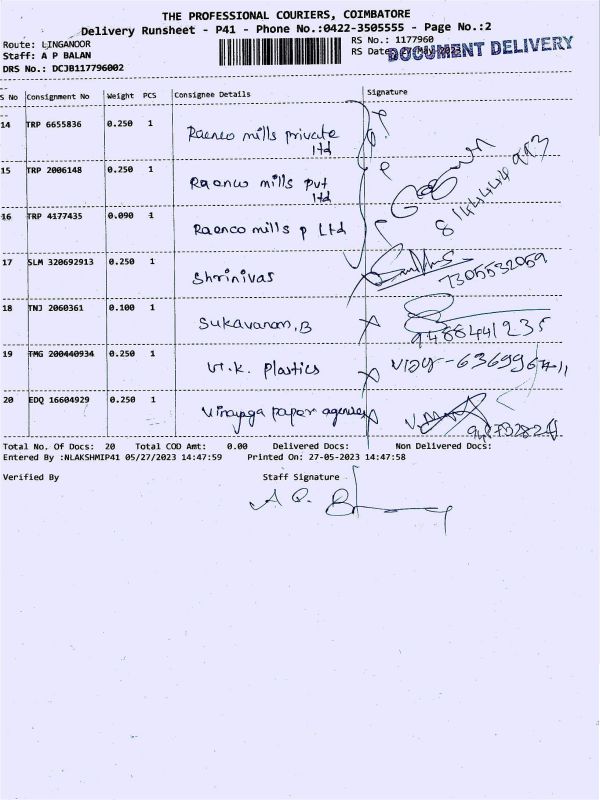 THE PROFESSIONAL COURIERS, COIMBATORE
Delivery Runsheet - P41 - Phone No.:0422-3505555 - Page No.:2
Route: LINGANOOR RS No.: 1177960
Staff: A P BALAN RS Date DOCUMENT DELIVERY
DRS No.: DCJB117796002
S No Consignment No Weight PCS Consignee Details Signature
14 TRP 6655836 0.250 1 Raenco mills private
ltd
15 TRP 2006148 0.250 1 Raenco mills pvt
ltd
16 TRP 4177435 0.090 1 Raenco mills p Ltd
17 SLM 320692913 0.250 1 Shrinivas 7305532069
18 TNJ 2060361 0.100 1 Sukavanam, B 9488441235
19 TMG 200440934 0.250 1 V.K. Plastics
20 EDQ 16604929 0.250 1 paper
Total No. Of Docs: 20 Total COD Amt: 0.00 Delivered Docs: Non Delivered Docs:
Entered By :NLAKSHMIP41 05/27/2023 14:47:59 Printed On: 27-05-2023 14:47:58
Verified By Staff Signature